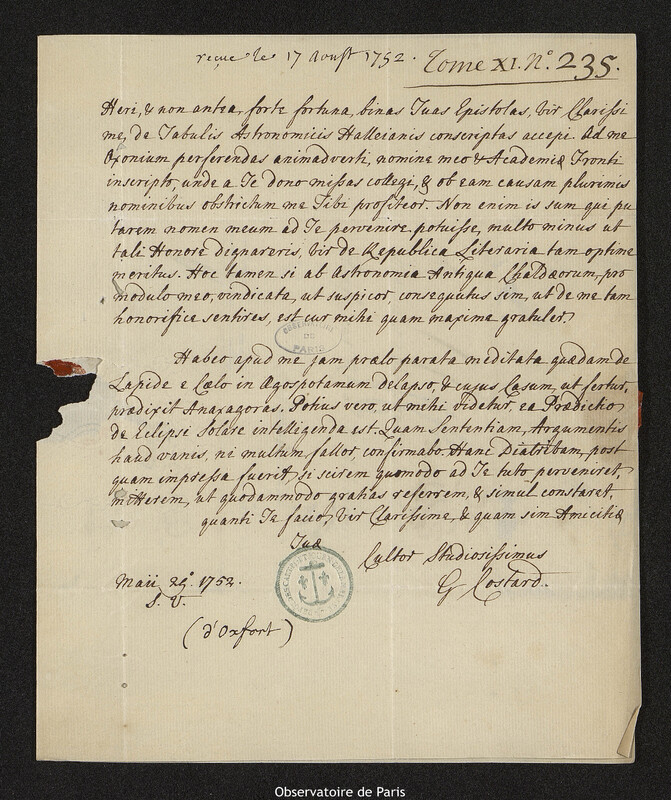 reçue le 17 Aoust 1752. Tome XI. N.º 235.
Heri, & non antea, forte fortuna, binas Tuas Epistolas, Vir Clarissi
me, de Tabulis Astronomicis Halleianis conscriptas accepi. Ad me
Oxonium perferendas animadverti, nomine meo & Academiæ Fronti
inscripto, unde a Te dono missas collegi, & ob eam causam plurimis
nominibus obstrictum me Tibi profiteor. Non enim is sum qui pu
tarem nomen meum ad Te pervenire potuisse, multo minus ut
tali Honore dignareris, Vir de Republica Literaria tam optime
meritus. Hoc tamen si ab Astronomia Antiqua Chaldæorum, pro
modulo meo, vindicata, ut suspicor, consequutus sim, ut de me tam
honorifice sentires, est cur mihi quam maxime gratuler.
OBSERVATOIRE
DE
PARIS
Habeo apud me jam prælo parata meditata quædam de
Lapide e Cælo in Ægospotamum delapso, & cujus Casum, ut fertur,
prædixit Anaxagoras. Potius vero, ut mihi videtur, ea Prædictio
de Eclipsi Solare intelligenda est. Quam Sententiam, Argumentis
haud vanis, ni multum fallor, confirmabo. Hanc Diatribam, post
quam impressa fuerit, si scirem quomodo ad Te tuto perveniret,
mitterem, ut quodammodo gratias referrem, & simul constaret,
quanti Te facio, Vir Clarissime, & quam sim Amicitiæ
Tuæ
Cultor Studiosissimus
G Costard.
Maii 29º. 1752.
S. V.
(d'Oxfort)
Observatoire de Paris